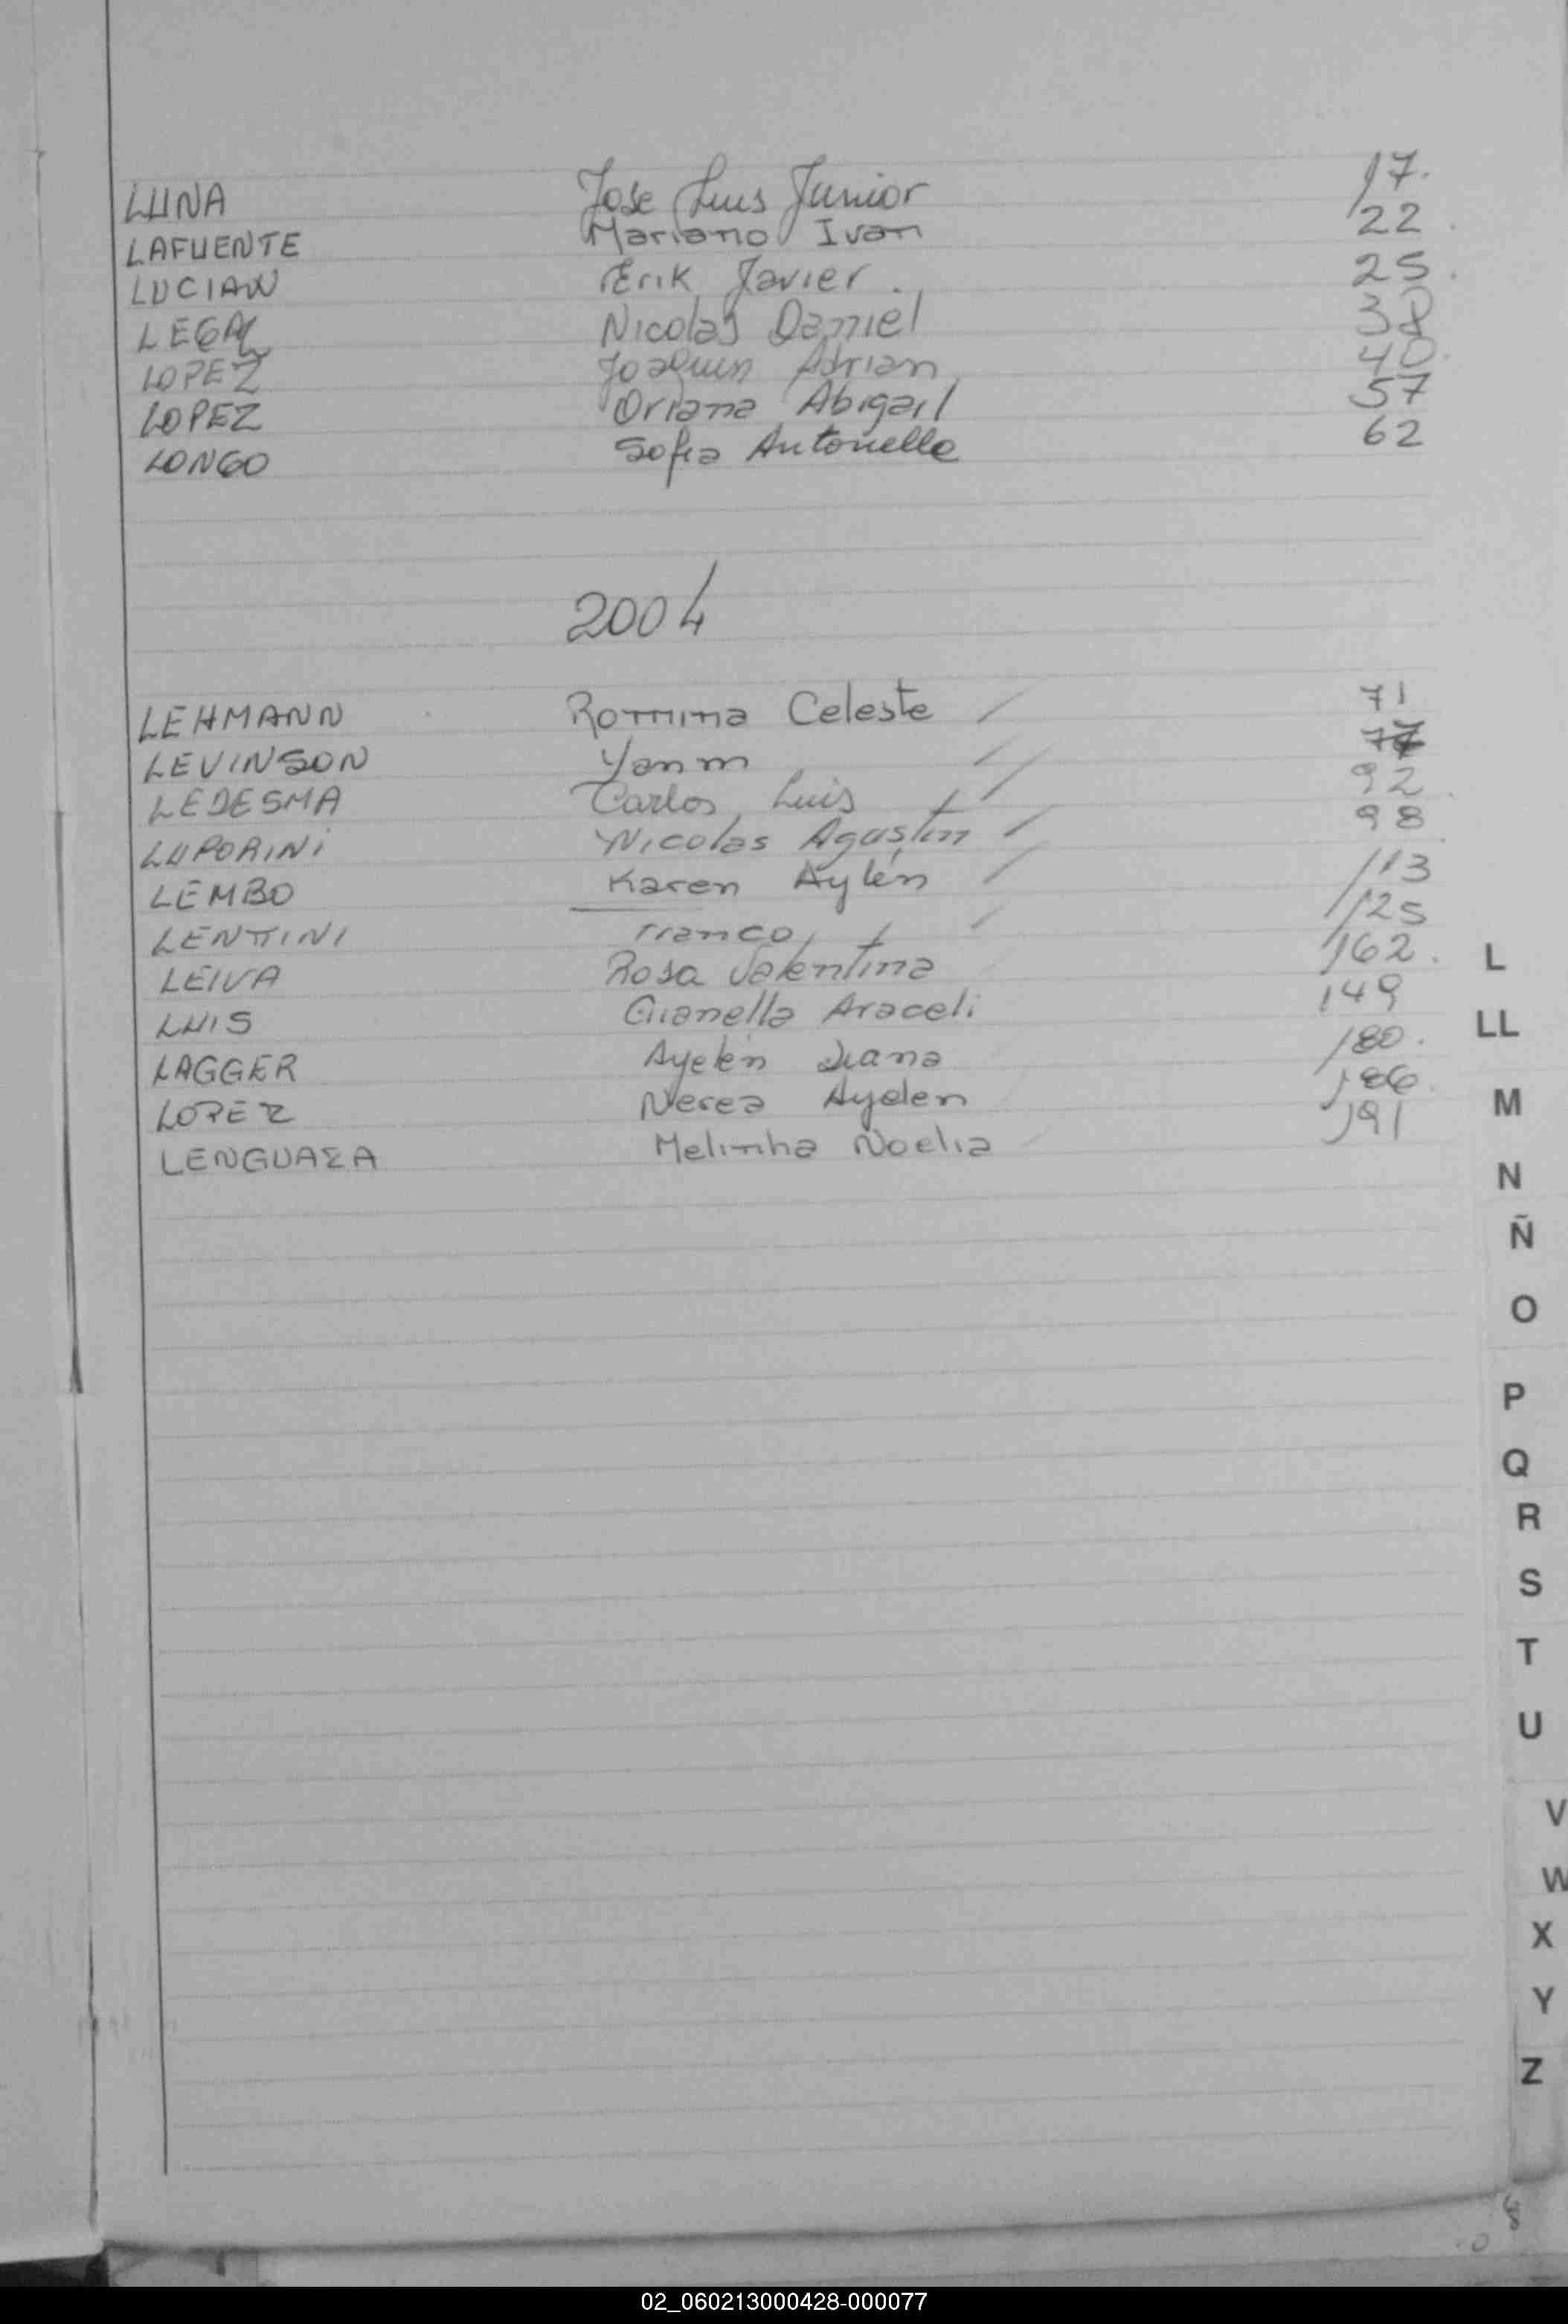 LUNA Jose Luis Junior 17.
LAFUENTE Mariano Ivan 22
LUCIAN Erik Javier. 25.
LEGAL Nicolas Daniel 38
LOPEZ Joaquin Adrian 40.
LOPEZ Oriana Abigail 57
LONGO Sofia Antonella 62
2004
LEHMANN Romina Celeste / 71
LEVINSON /
LEDESMA Carlos Luis / 92
LUPORINI Nicolas Agustin / 98
LEMBO Karen Aylén / 113
LENTINI Franco / 125
LEIVA Rosa Valentina 162.
LUIS Gianella Araceli 149
LAGGER Ayelén Diana 180.
LOPEZ Nerea Ayelen 186.
LENGUAZA Melinha Noelia 191
L
LL
M
N
Ñ
O
P
Q
R
S
T
U
V
W
X
Y
Z
02_060213000428-000077